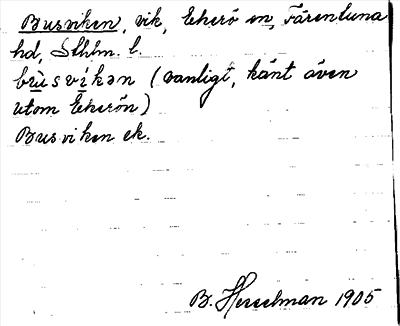 Busviken, vik, Ekerö sn, Färentuna
hd, Sthlm. l.
bùsvíkən (vanligt, känt även
utom Ekerön)
Busviken ek.
B. Hesselman 1905